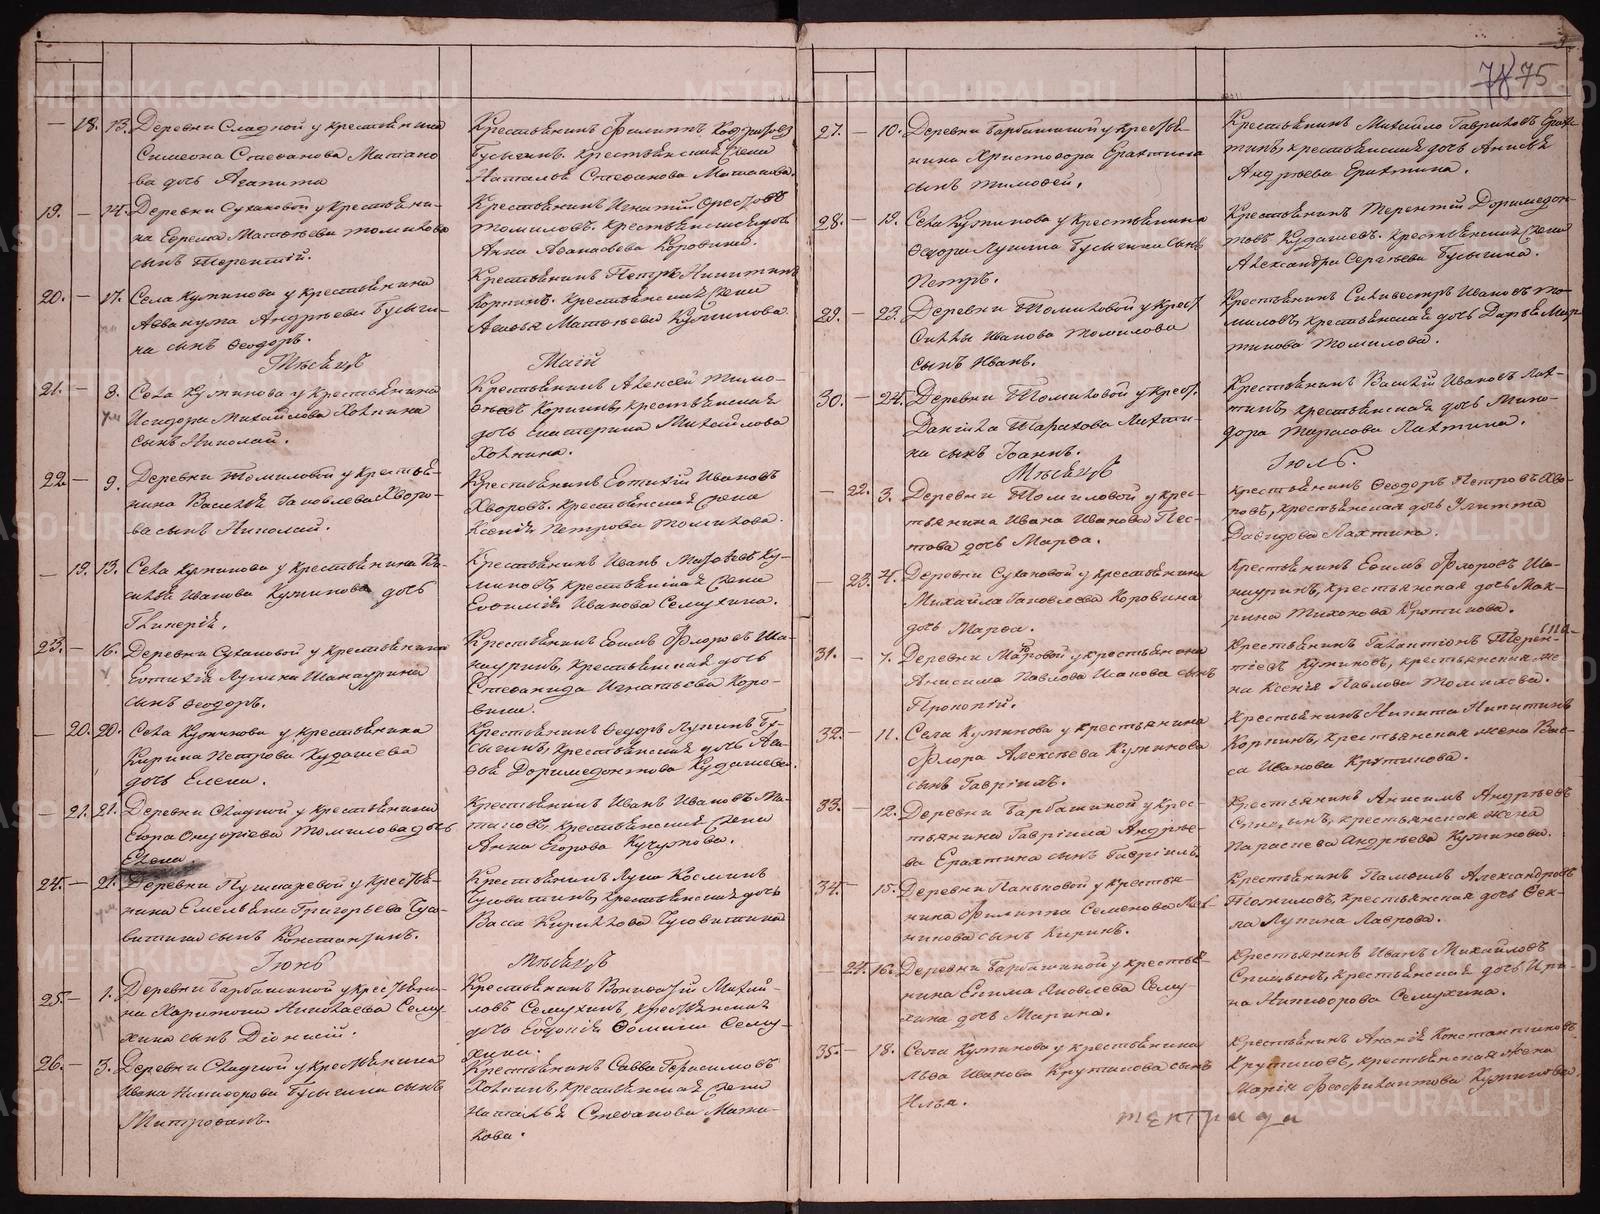 78 75
18. 13. Деревни Сладкой у крестьянина
Симеона Стефанова Матано-
ва дочь Агапита
Крестьянинъ Филиппъ
Бусыгинъ. крестьянская жена
Наталья Стефанова Матанова.
19. — 14. Деревни Сухановой у крестьяни-
на Ефрема Матѳѣева Томилова
сынъ Терентій.
Крестьянинъ Игнатій Орестовъ
Томиловъ. крестьянская дочь
Анна Аѳанасьева Коровина.
20. — 17. Села Куликова у крестьянина
Аввакума Андрѣева Бусыги-
на сынъ Ѳеодоръ.
Крестьянинъ Петръ Никитинъ
Коркинъ. крестьянская жена
Агаѳья Матѳѣева Куликова.
Мѣсяцъ Маій
21. — 8. Села Куликова у крестьянина
Исидора Михайлова Холкина
сынъ Николай.
Крестьянинъ Алексей Тимо-
ѳеевъ Коркинъ, крестьянская
дочь Екатерина Михайлова
Холкина.
22. — 9. Деревни Томиловой у крестья-
нина Василья Яковлева Хворо-
ва сынъ Николай.
Крестьянинъ Евтихій Ивановъ
Хворовъ. Крестьянская жена
Ксенія Петрова Томилова.
— 19. 13. Села Куликова у крестьянина Ва-
силья Иванова Куликова дочь
Гликерія.
Крестьянинъ Иванъ
ликовъ, крестьянская жена
Евфимія Иванова Семухина.
23. — 16. Деревни Сухановой у крестьянина
Евтихія Лукина Шанаурина
сынъ Ѳеодоръ.
Крестьянинъ Ефимъ Флоровъ Ша-
науринъ, крестьянская дочь
Стефанида Игнатьева Коро-
вина.
— 20. 20. Села Куликова у крестьянина
Кирика Петрова Кудашева
дочь Елена.
Крестьянинъ Ѳедоръ Лукинъ Бу-
сыгинъ, крестьянская дочь Ага-
ѳья Доримедонтова Кудашева.
— 21. 21. Деревни Сладкой у крестьянина
Егора Онуфріева Томилова дочь
Елена.
Крестьянинъ Иванъ Ивановъ Ма-
таковъ, крестьянская жена
Анна Егорова Кучумова.
24. — 21. Деревни Пушкаревой у крестья-
нина Емельяна Григорьева Чусо-
витина сынъ Константинъ.
Крестьянинъ Лука Косминъ
Чусовитинъ, крестьянская дочь
Васса Кирилова Чусовитина
Іюнь Мѣсяцъ
25. — 1. Деревни Барбашиной у крестьяни-
на Харитона Николаева Сему-
хина сынъ Діонисій.
Крестьянинъ Вонифатій Михай-
ловъ Семухинъ, крестьянская
дочь Евдокія Ѳомина Сему-
хина.
26. — 3. Деревни Сладкой у крестьянина
Ивана Никифорова Бусыгина сынъ
Митрофанъ.
Крестьянинъ Савва Герасимовъ
Холкинъ, крестьянская жена
Наталья Стефанова Мата-
кова.
27. — 10. Деревни Барбашиной у крестья-
нина Христофора Ерахтина
сынъ Тимоѳей.
Крестьянинъ Михайло Гавриловъ Ерах-
тинъ, крестьянская дочь Анисья
Андрѣева Ерахтина.
28. — 19. Села Куликова у крестьянина
Ѳедора Лукина Бусыгина сынъ
Петръ.
Крестьянинъ Терентій Доримедон-
товъ Кудашевъ. крестьянская жена
Александра Сергѣева Бусыгина.
29. — 23. Деревни Томиловой у крест.
Силы Иванова Томилова
сынъ Иванъ.
Крестьянинъ Силивестръ Ивановъ То-
миловъ, крестьянская дочь Дарья Мар-
тинова Томилова.
30. — 24. Деревни Томиловой у крест.
Даніила Тарасова Лахти-
на сынъ Іоаннъ.
Крестьянинъ Василій Ивановъ Лах-
тинъ, крестьянская дочь Мино-
дора Тарасова Лахтина.
Мѣсяцъ Іюль.
— 22. 3. Деревни Томиловой у крес-
тьянина Ивана Иванова Пес-
това дочь Марѳа.
Крестьянинъ Ѳеодоръ Петровъ Хво-
ровъ, крестьянская дочь Улитта
Давидова Лахтина.
— 23. 4. Деревни Сухановой у крестьянина
Михайла Яковлева Коровина
дочь Марѳа.
Крестьянинъ Ефимъ Флоровъ Ша-
науринъ, крестьянская дочь Мак-
рина Тихонова Крутикова.
31. — 7. Деревни у крестьянина
Анисима Павлова Исакова сынъ
Прокопій.
Крестьянинъ Галактіонъ Терен-
тіевъ Куликовъ, крестьянская же-
на Ксенія Павлова Томилова.
32. — 11. Села Куликова у крестьянина
Флора Алексѣева Куликова
сынъ Гавріилъ.
Крестьянинъ Никита Никитинъ
Коркинъ, крестьянская жена Вас-
са Иванова Крутикова.
33. — 12. Деревни Барбашиной у крес-
тьянина Гавріила Андрѣе-
ва Ерахтина сынъ Гавріилъ.
Крестьянинъ Анисимъ Андрѣевъ
Спицынъ, крестьянская жена
Параскева Андрѣева Куликова.
34. — 15. Деревни Паньковой у крестья-
нина Филиппа Семенова
сынъ Кирикъ.
Крестьянинъ Памфилъ Александровъ
Томиловъ, крестьянская дочь Ѳек-
ла Лукина Лаврова.
— 24. 16. Деревни Барбашиной у крестья-
нина Екима Яковлева Сему-
хина дочь Марина.
Крестьянинъ Иванъ Михайловъ
Спицынъ, крестьянская дочь Ири-
на Никифорова Семухина.
35. — 18. Села Куликова у крестьянина
Льва Иванова Крутикова сынъ
Илья.
Крестьянинъ Ананій Константиновъ
Крутиковъ, крестьянская жена
Марія Феофилактова Куликова.
METRIKI.GASO-URAL.RU